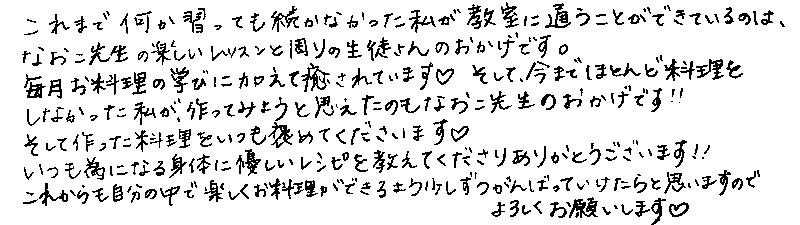 これまで何か習っても続かなかった私が教室に通うことができているのは、
なおこ先生の楽しいレッスンと周りの生徒さんのおかげです。
毎月お料理の学びに加えて癒されています♡ そして、今までほとんど料理を
しなかった私が、作ってみようと思えたのもなおこ先生のおかげです!!
そして作った料理をいつも褒めてくださいます♡
いつも為になる身体に優しいレシピを教えてくださりありがとうございます!!
これからも自分の中で楽しくお料理ができるよう少しずつがんばっていけたらと思いますので
よろしくお願いします♡